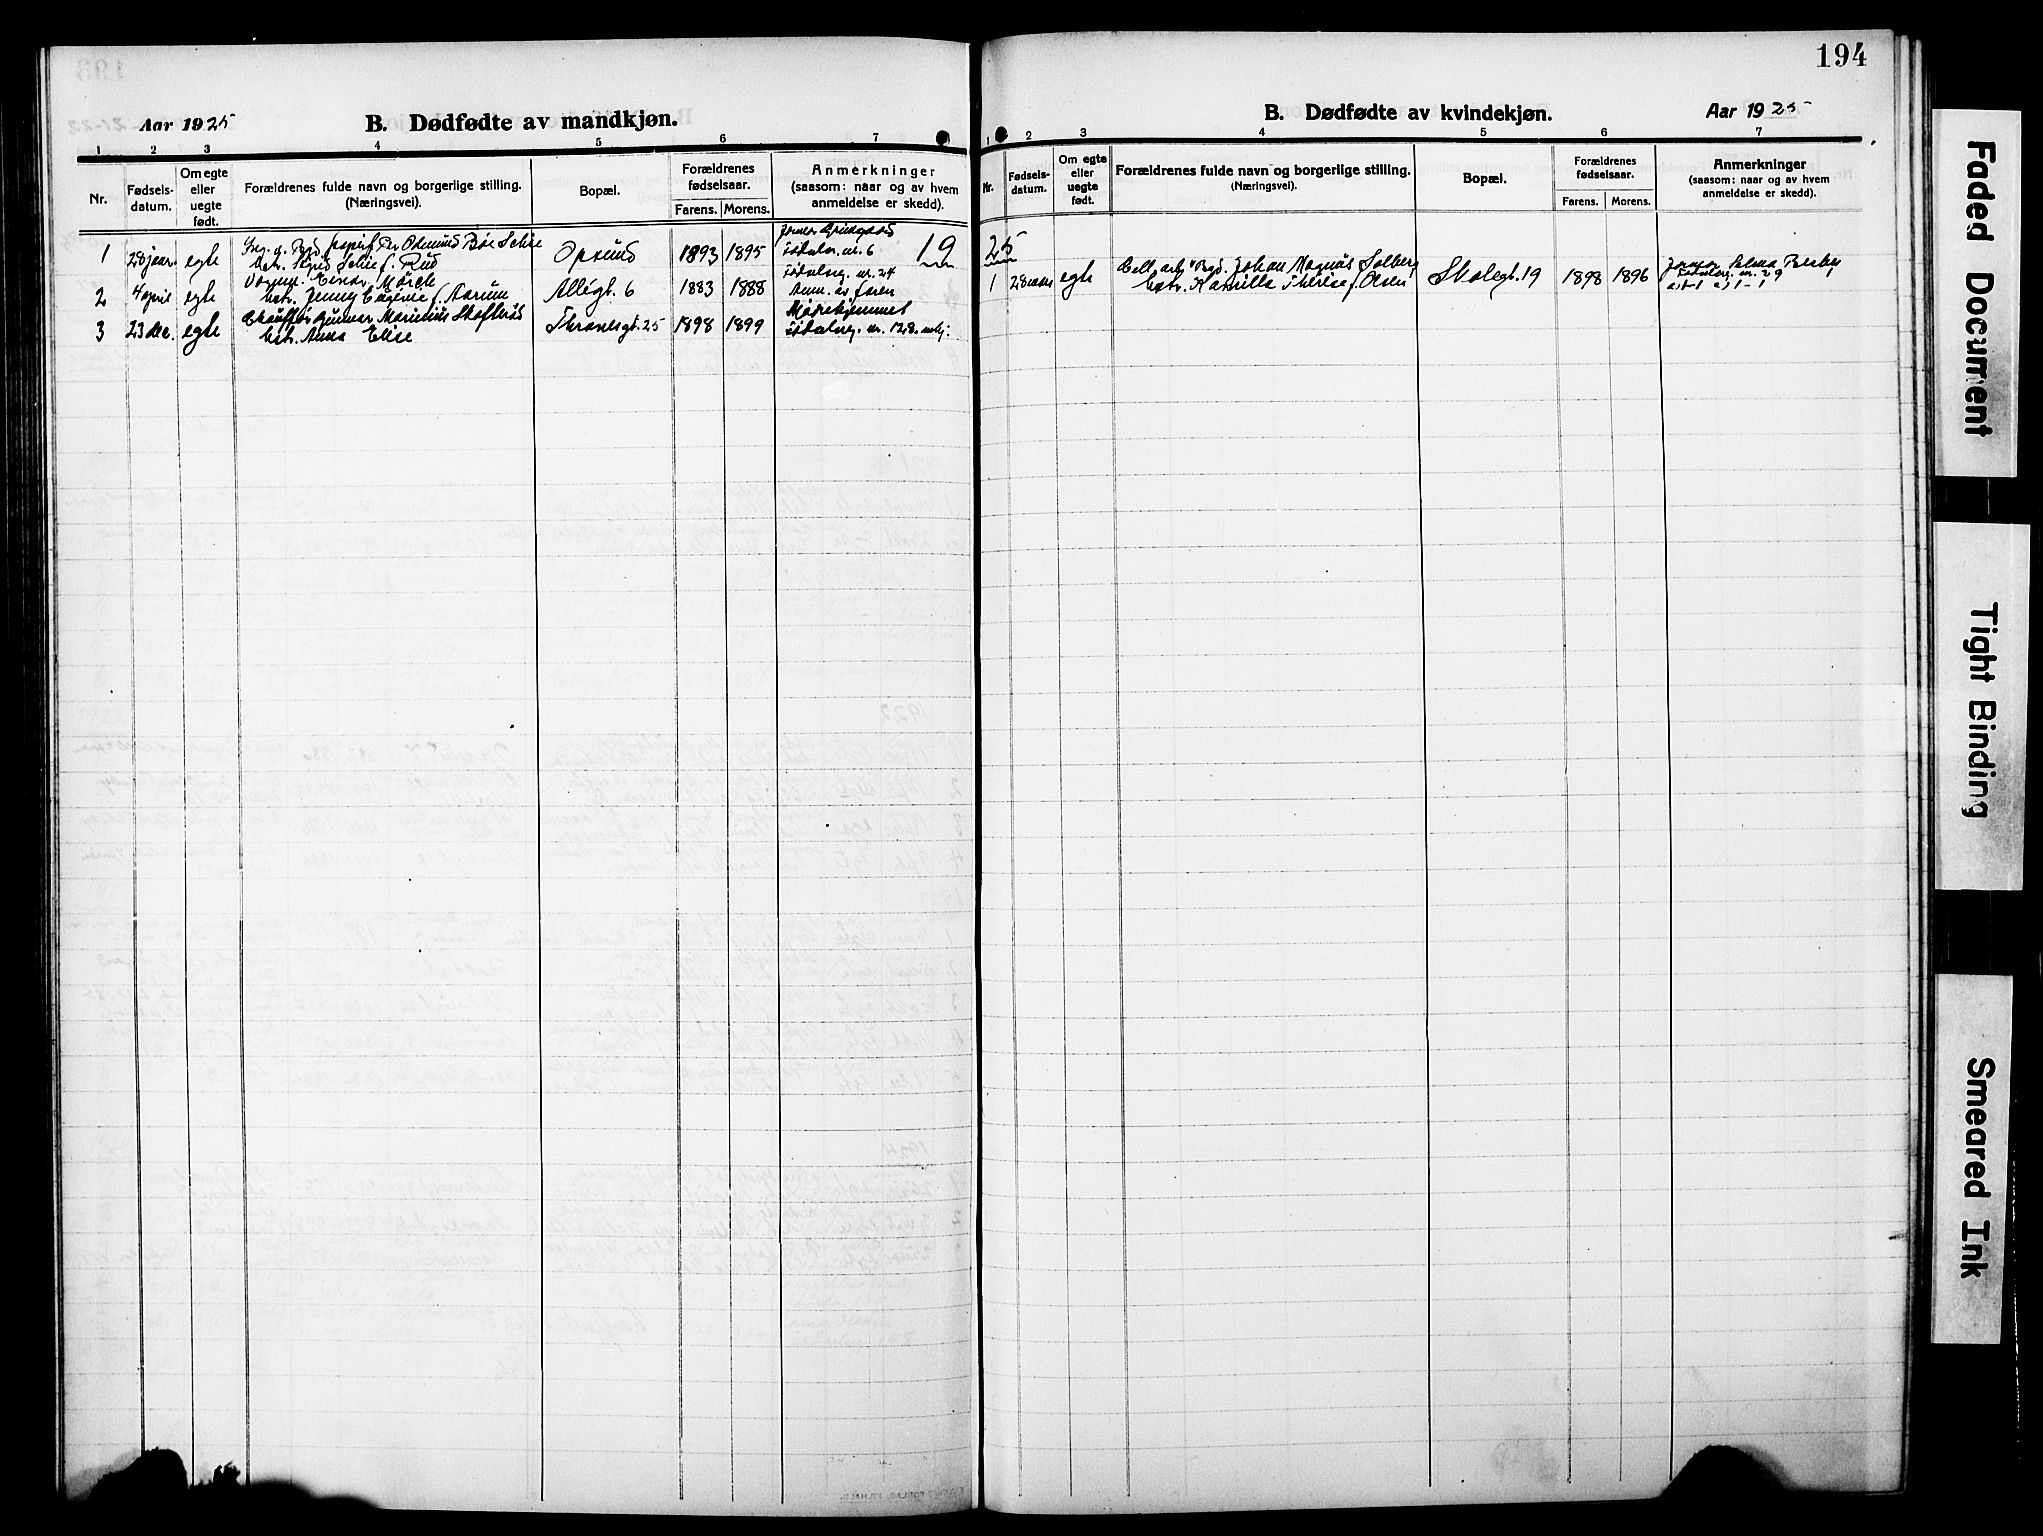 Aar 1925
B. Dødfødte av mandkjøn.
1 2 3 4 5 6 7
Nr.
Fødsels-
datum.
Om egte
eller
uegte
født.
Forældrenes fulde navn og borgerlige stilling.
(Næringsvei).
Bopæl.
Forældrenes
fødselsaar.
Farens. Morens.
Anmerkninger
(saasom: naar og av hvem
anmeldelse er skedd).
19
1 28 jan. egte
Per Odmund Bøe Schie
Sigrid Schie f. Rud
Opsund 1893 1895
Jormor
nr. 6
2 4 april egte
Einar Mørch
hstr. Jenny Eugenie f. Aarum
Allégt. 6 1883 1888
nr. 24
Anm. av faren
3 23 dec. egte
Chauffør Gunnar Marinius
hstr. Anna Elise
Thranesgt. 25 1898 1899
nr. 128.
194
B. Dødfødte av kvindekjøn.
Aar 1925
1 2 3 4 5 6 7
Nr.
Fødsels-
datum.
Om egte
eller
uegte
født.
Forældrenes fulde navn og borgerlige stilling.
(Næringsvei).
Bopæl.
Forældrenes
fødselsaar.
Farens. Morens.
Anmerkninger
(saasom: naar og av hvem
anmeldelse er skedd).
25
1 28 mars egte
Cell. arb. Johan Magnus Solberg
hstr. Kamilla Theresa f. Olsen
Skolegt. 19 1898 1896
Jormor
nr. 29
Faded Document
Tight Binding
Smeared Ink